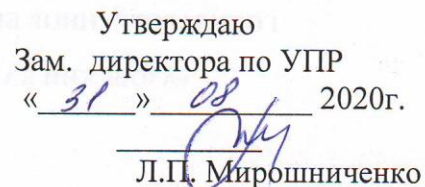 Утверждаю
Зам. директора по УПР
« 31 » 08 2020г.
Л.П. Мирошниченко